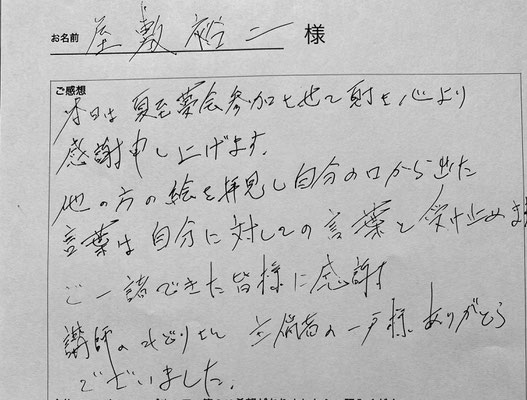 お名前 屋敷裕二 様
ご感想
本日は夏至夢会参加させて頂き心より
感謝申し上げます。
他の方の絵を拝見し自分の口から出た
言葉は自分に対しての言葉と受け止めま
ご一諸できた皆様に感謝
講師のみどりさん 主催者の一戸様、ありがとう
ございました。